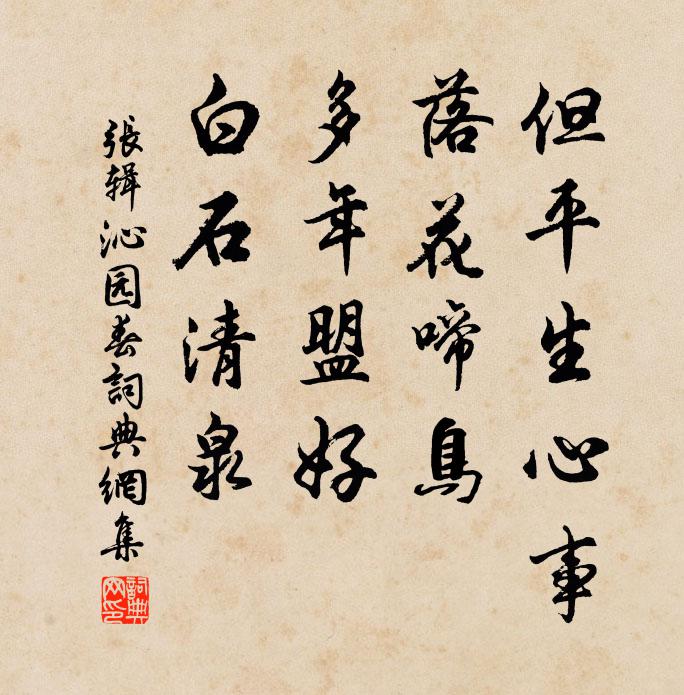 但平生心事
落花啼鳥
多年盟好
白石清泉
張辑沁园春詞典網集
詞典網印